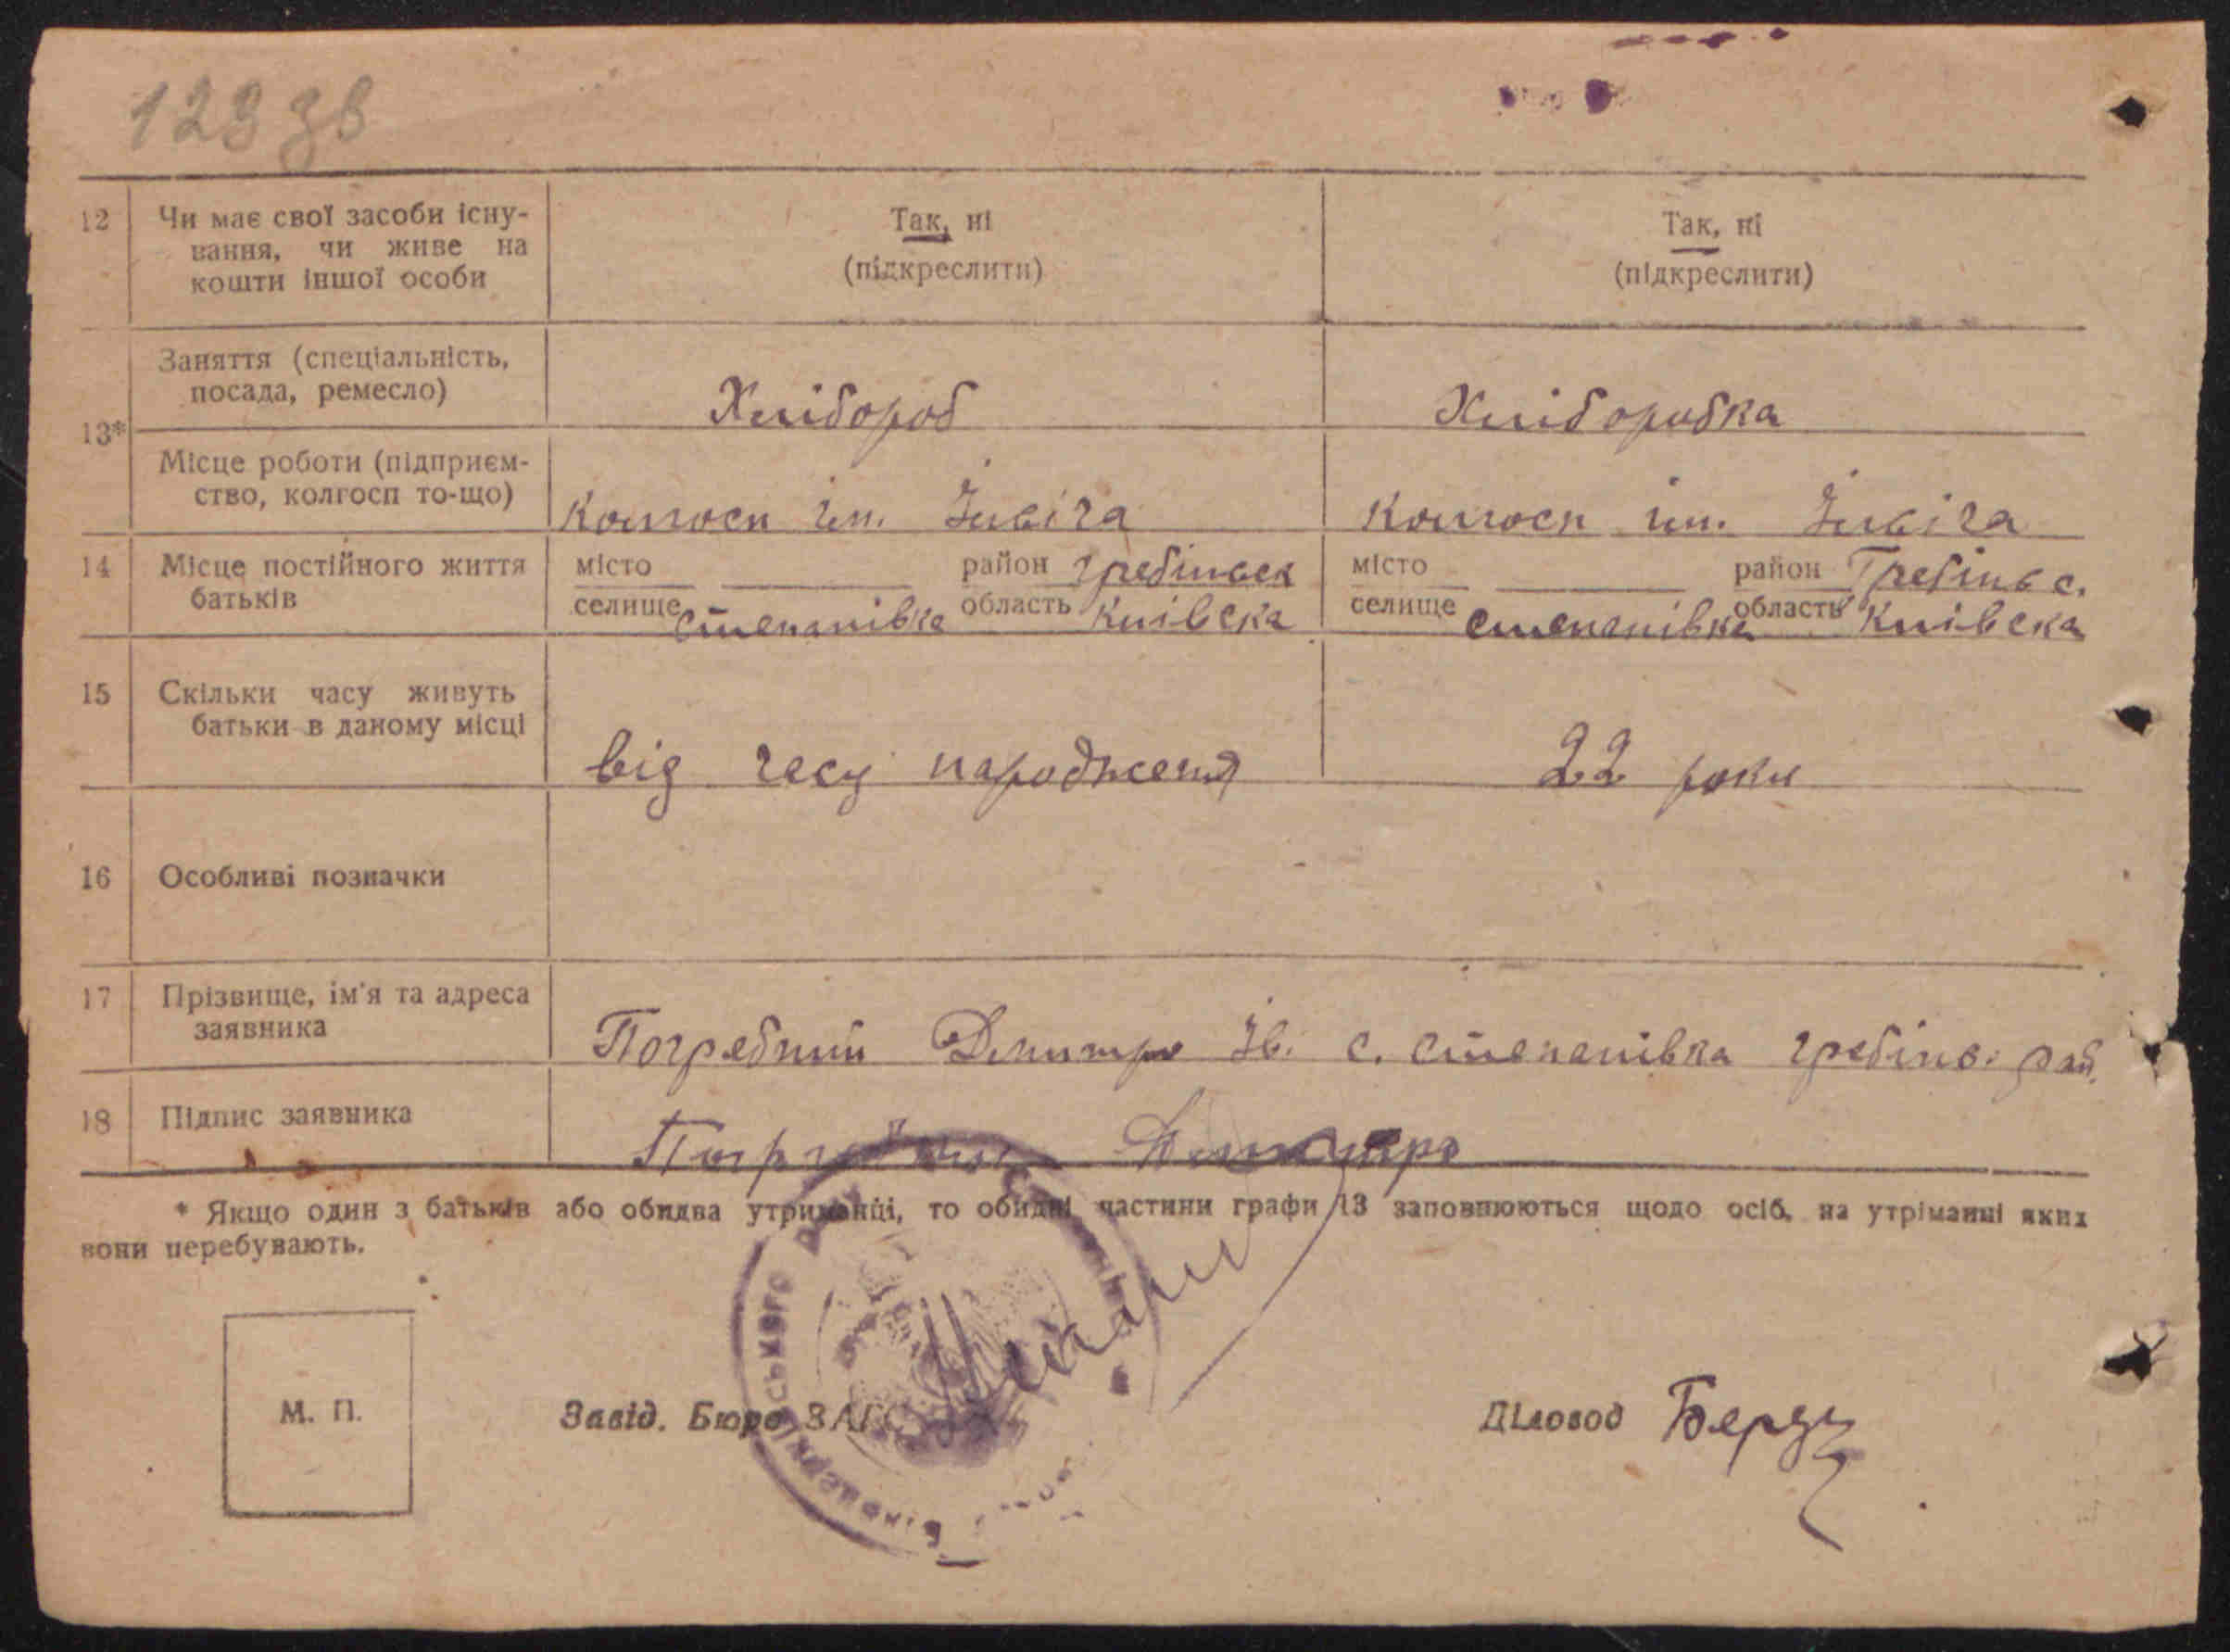 123 зв
12 Чи має свої засоби існу-
вання, чи живе на
кошти іншої особи
Так, ні
(підкреслити)
Так, ні
(підкреслити)
13*
Заняття (спеціальність,
посада, ремесло)
Хлібороб
Хліборобка
Місце роботи (підприєм-
ство, колгосп то-що)
Колгосп ім. Ілліча
Колгосп ім. Ілліча
14 Місце постійного життя
батьків
місто район Гребінськ
селище степанівка область Київска
місто район Гребіньс.
селище степанівка область Київска
15 Скільки часу живуть
батьки в даному місці
від часу народженя
22 роки
16 Особливі позначки
17 Прізвище, ім'я та адреса
заявника
Погребний Дмитро Ів. с. степанівка гребінс. рай.
18 Підпис заявника
Погребний Дмитро
* Якщо один з батьків або обидва утриманці, то обидві частини графи 13 заповнюються щодо осіб, на утріманні яких
вони перебувають.
М. П.
Завід. Бюро ЗАГС
Діловод